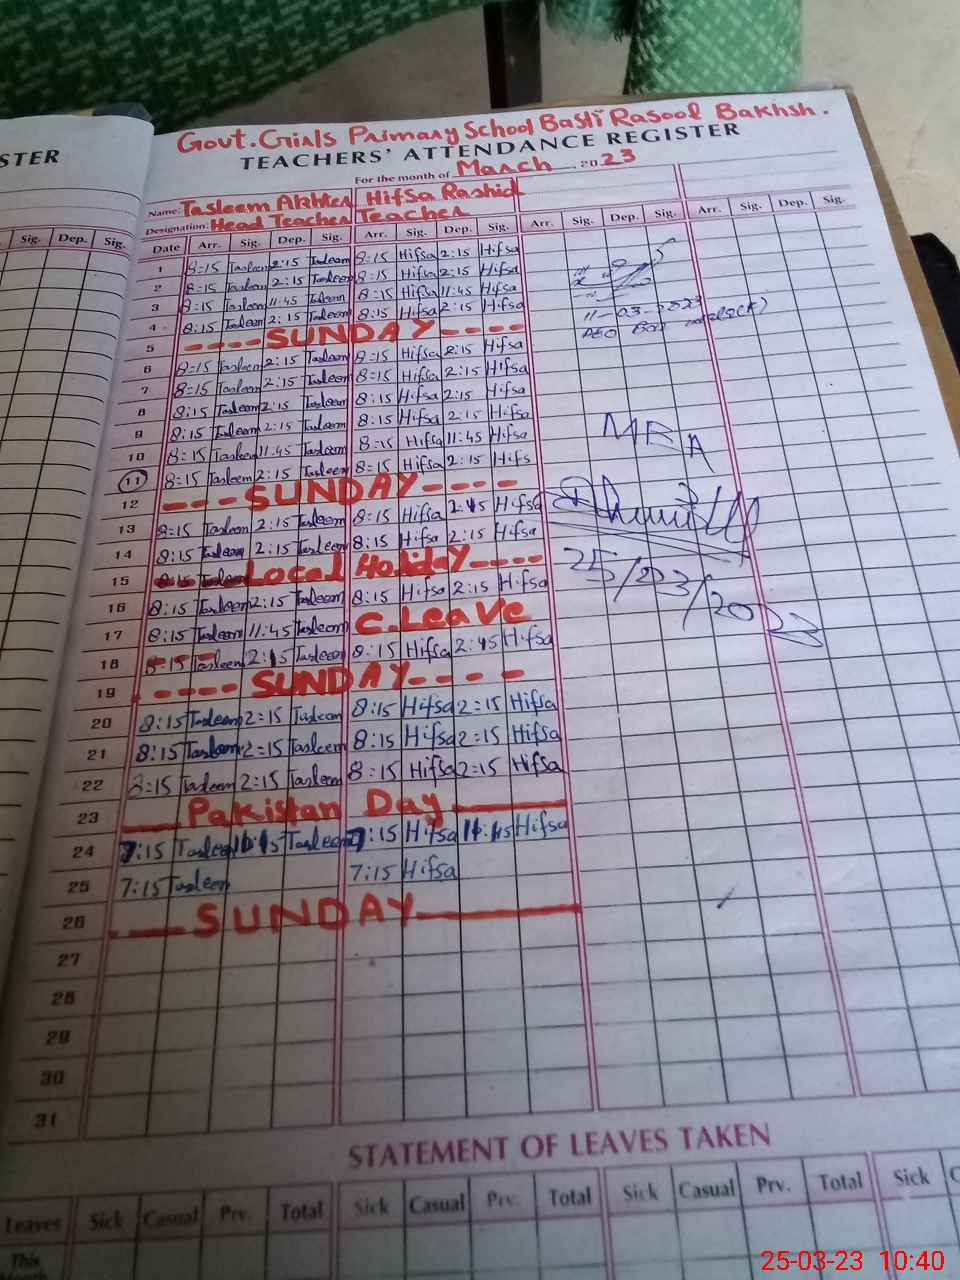 STER
Govt. Girls Primary School Basti Rasool Bakhsh.
TEACHERS' ATTENDANCE REGISTER
For the month of March 2023
Name: Tasleem Akhter Hifsa Rashid
Designation: Head Teacher Teacher
Sig. Dep. Sig. Date Arr. Sig. Dep. Sig. Arr. Sig. Dep. Sig. Arr. Sig. Dep. Sig. Arr. Sig. Dep. Sig.
1 8:15 Tasleem 2:15 Tasleem 8:15 Hifsa 2:15 Hifsa
2 8:15 Tasleem 2:15 Tasleem 8:15 Hifsa 2:15 Hifsa
3 8:15 Tasleem 11:45 Tasleem 8:15 Hifsa 11:45 Hifsa
4 8:15 Tasleem 2:15 Tasleem 8:15 Hifsa 2:15 Hifsa
11-03-2023
AEO
5 ---- SUNDAY ----
6 8:15 Tasleem 2:15 Tasleem 8:15 Hifsa 2:15 Hifsa
7 8:15 Tasleem 2:15 Tasleem 8:15 Hifsa 2:15 Hifsa
8 8:15 Tasleem 2:15 Tasleem 8:15 Hifsa 2:15 Hifsa
9 8:15 Tasleem 2:15 Tasleem 8:15 Hifsa 2:15 Hifsa
10 8:15 Tasleem 11:45 Tasleem 8:15 Hifsa 11:45 Hifsa
MEA
11 8:15 Tasleem 2:15 Tasleem 8:15 Hifsa 2:15 Hifs
12 ---- SUNDAY ----
13 8:15 Tasleem 2:15 Tasleem 8:15 Hifsa 2:15 Hifsa
14 8:15 Tasleem 2:15 Tasleem 8:15 Hifsa 2:15 Hifsa
25/03/2023
15 Local Holiday ----
16 8:15 Tasleem 2:15 Tasleem 8:15 Hifsa 2:15 Hifsa
17 8:15 Tasleem 11:45 Tasleem C.Leave
18 8:15 Tasleem 2:15 Tasleem 8:15 Hifsa 2:15 Hifsa
19 ---- SUNDAY ----
20 8:15 Tasleem 2:15 Tasleem 8:15 Hifsa 2:15 Hifsa
21 8:15 Tasleem 2:15 Tasleem 8:15 Hifsa 2:15 Hifsa
22 8:15 Tasleem 2:15 Tasleem 8:15 Hifsa 2:15 Hifsa
23 Pakistan Day
24 7:15 Tasleem Tasleem 7:15 Hifsa Hifsa
25 7:15 Tasleem 7:15 Hifsa
26 SUNDAY
27
28
29
30
31
STATEMENT OF LEAVES TAKEN
Leaves Sick Casual Prv. Total Sick Casual Prv. Total Sick Casual Prv. Total Sick
This
25-03-23 10:40